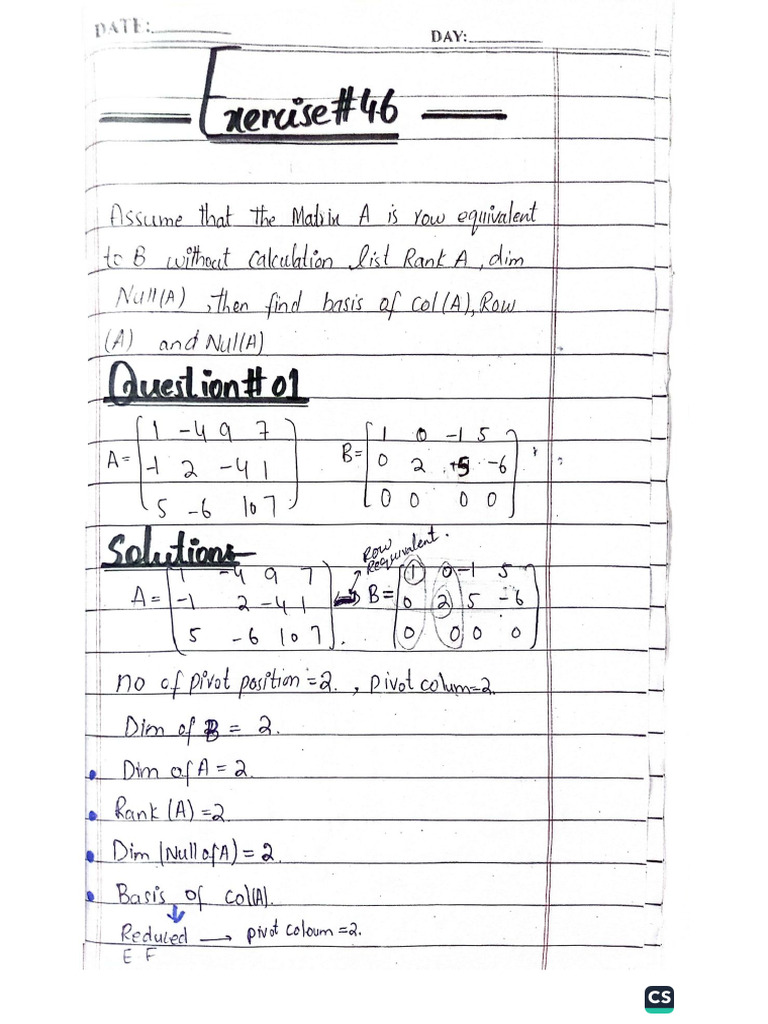 DATE:________
DAY:________
Exercise#46
Assume that the Matrix A is row equivalent
to B without calculation list Rank A, dim
Null(A), then find basis of col(A), Row
(A) and Nul(A)
Question#01
A= [1 -4 9 7
-1 2 -4 1
5 -6 10 7]
B= [1 0 -1 5
0 2 +5 -6
0 0 0 0]
Solutions
Row Requivalent.
A= [1 -4 9 7
-1 2 -4 1
5 -6 10 7].
B= [1 0 -1 5
0 2 5 -6
0 0 0 0]
no of pivot position=2. , pivot colum=2.
Dim of B = 2.
• Dim of A = 2.
• Rank (A) =2
• Dim (Null of A) = 2.
• Basis of col(A).
↓
Reduced → pivot coloum =2.
E F
CS